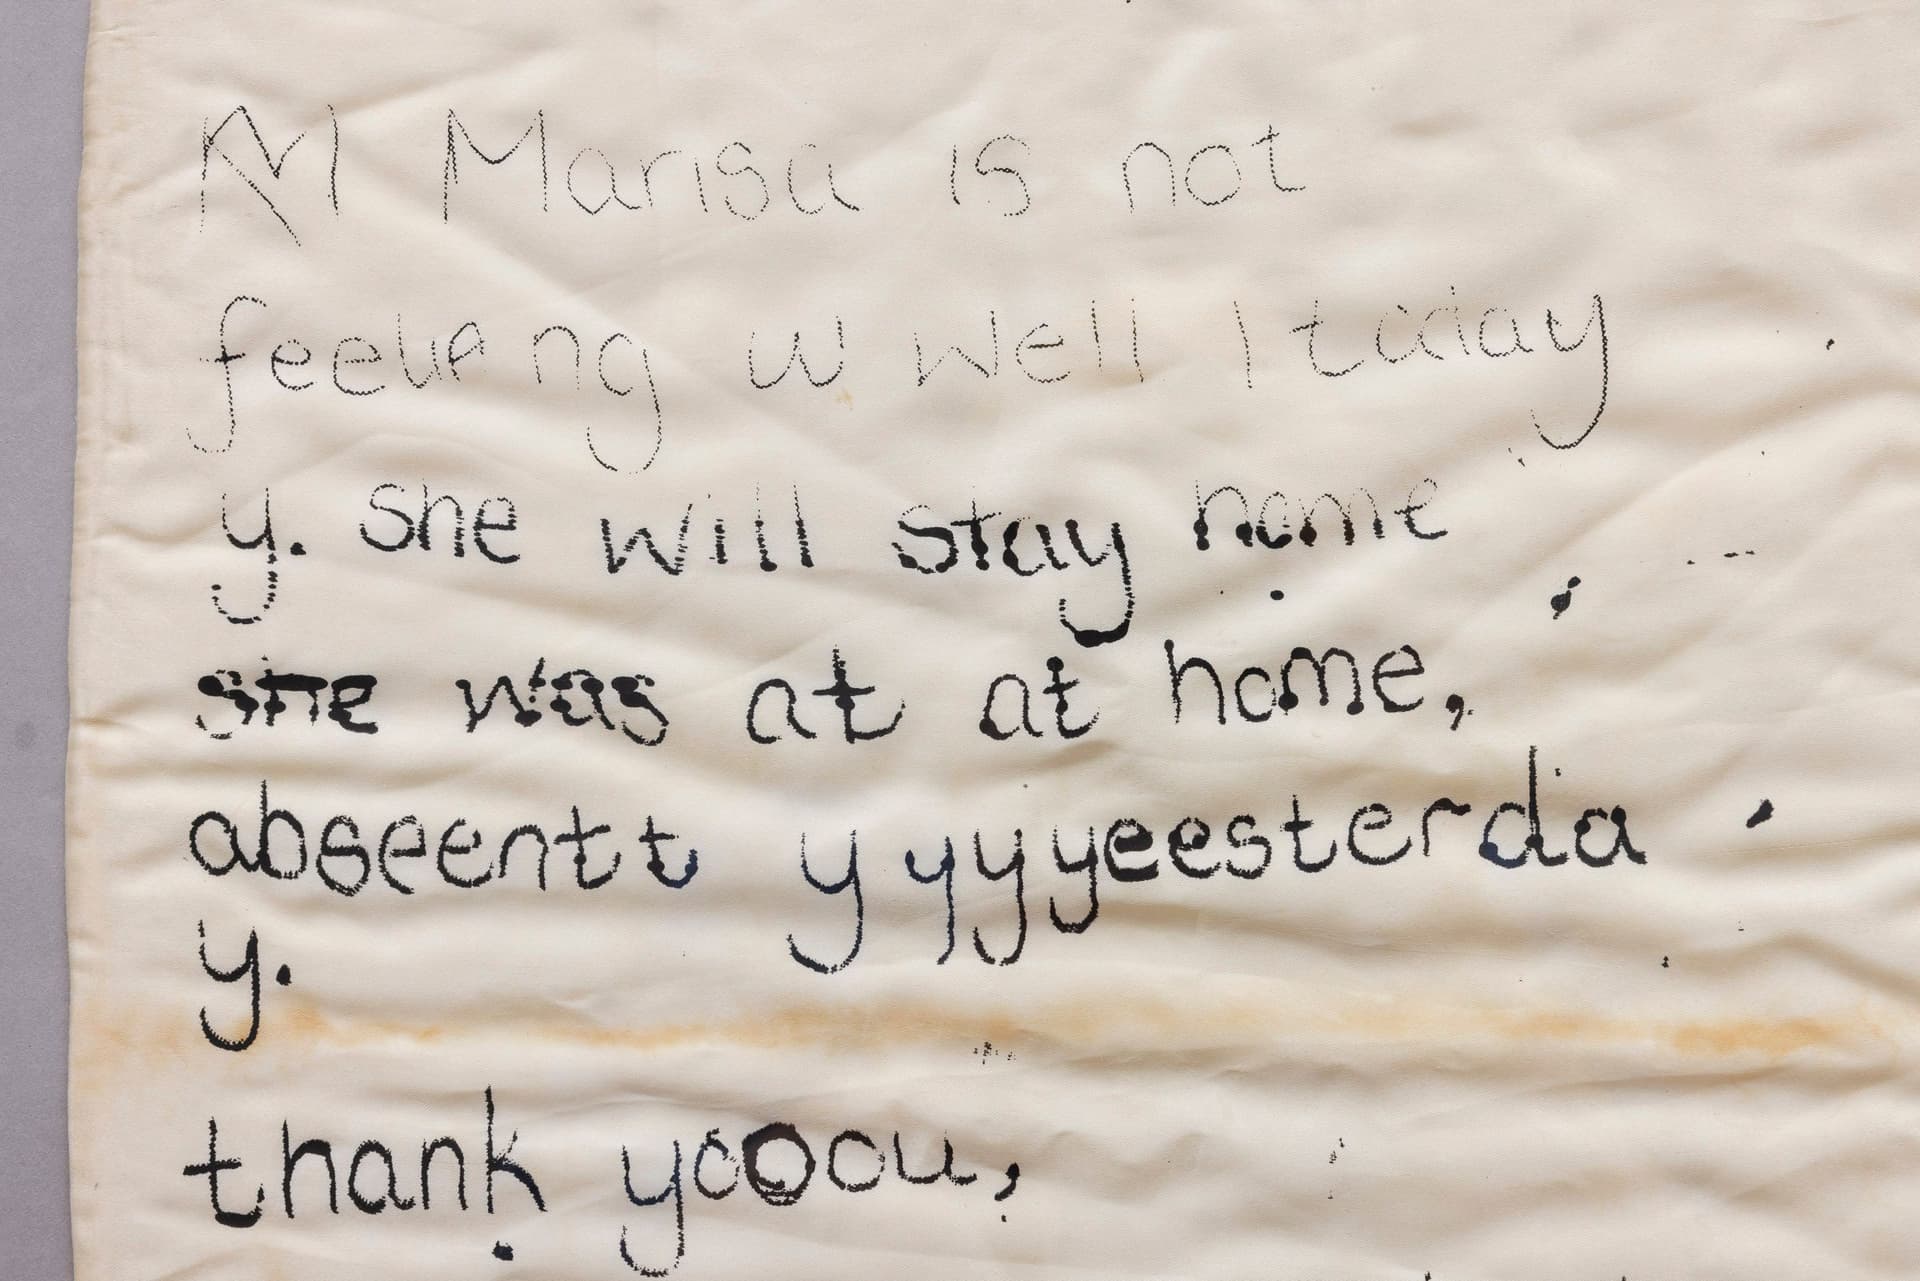 M Marisa is not
feeling w well I today
y. she will stay home
she was at at home,
abseentt y yyyeesterda
y.
thank yooou,